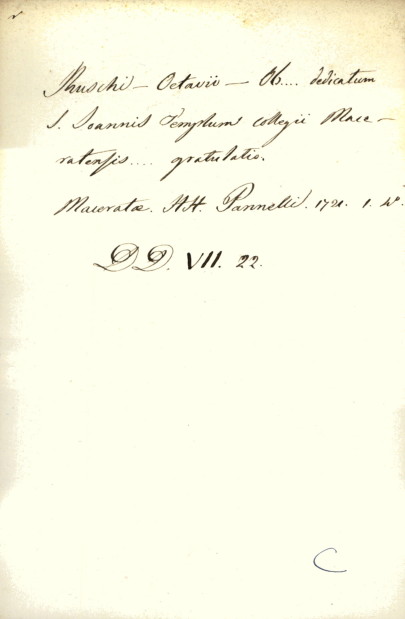 Ruschi – Octavii – Ob.... dedicatum
S. Joannis Templum collegii Mace–
ratensis.... gratulatio.
Maceratæ. HH. Pannelli. 1721. 1. 4º.
DD. VII. 22.
C